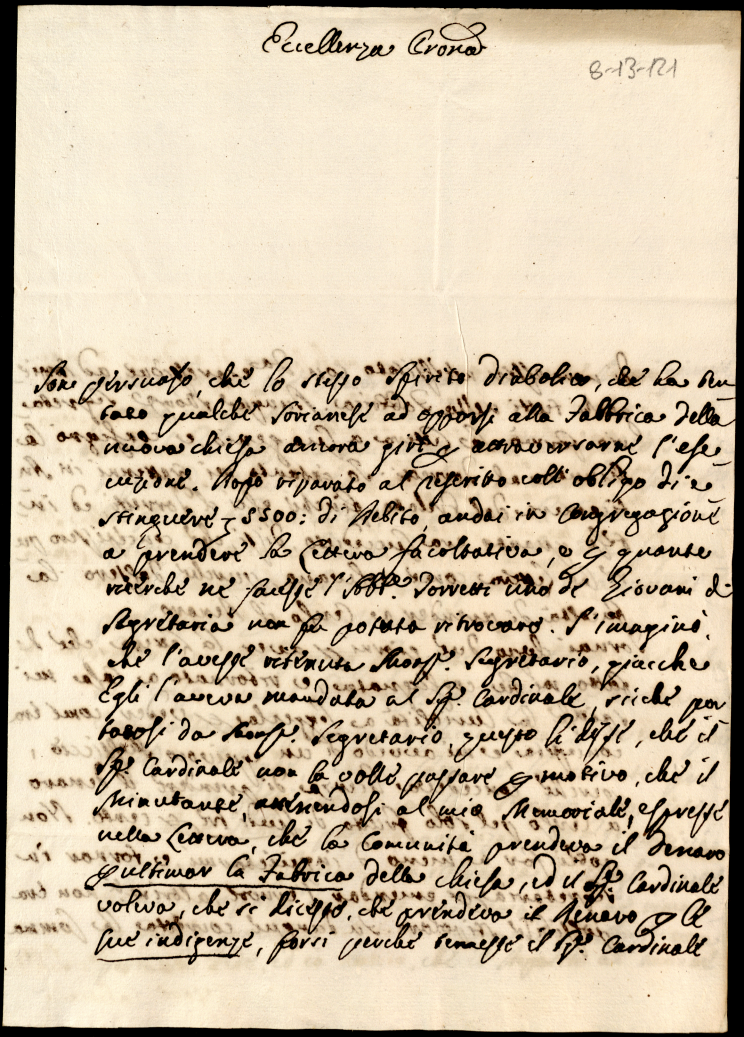 Eccellenza Crona
8-13-121
Sono persuaso, che lo stesso spirito diabolico, che ha ten
tato qualche Sorianese ad opporsi alla Fabbrica della
nuova chiesa ancora per attraversarne l'ese
cuzione. Dopo riparato al rescritto coll'obligo di e
stinguere 3300: di Debito, andai in Congregazione
a prendere la Lettera facoltativa, e p quante
ricerche ne facesse l'Abbe. Torretti uno de Giovani di
Segretaria non fu potuta ritrovare. S'imaginò,
che l'avesse ritenuta Monse. Segretario, giacche
Egli l'aveva mandata al Sig. Cardinale, sicche por
tatosi da Monse. Segretario questo li disse, che il
Sig. Cardinale non la volle passare p motivo, che il
Minutante, attenendosi al mio Memoriale, espresse
nella Lettera, che la Comunità prendeva il denaro
p ultimar la Fabrica della chiesa, ed il Sig. Cardinale
voleva, che si dicesse, che prendeva il Denaro p le
sue indigenze, forsi perche temesse il Sig. Cardinale